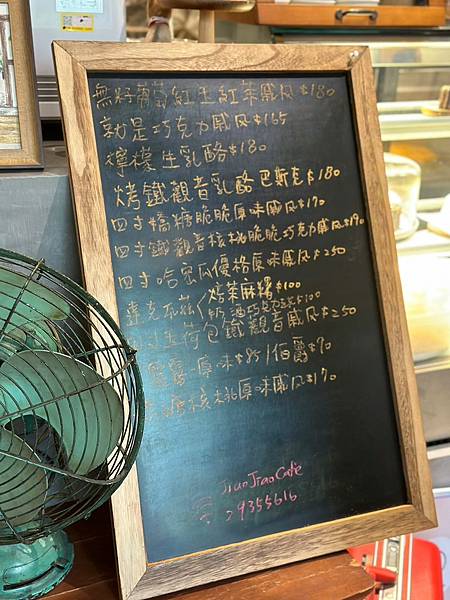 無籽葡萄紅玉紅茶戚风$180
就是巧克力戚风$165
檸檬生乳酪$180
烤鐵觀音乳酪巴斯克$180
四寸橋糖脆脆原味戚风$170
四寸鐵觀音核桃脆脆巧克力戚风$190
四寸哈密瓜優格原味戚风$250
達克瓦茲 焙茶麻糬$100
奶油巧克 $100
荷包鐵觀音戚风$250
原味$85/伯爵$90
糖核桃原味戚风$170
JiaoJiaoCafe
29355616